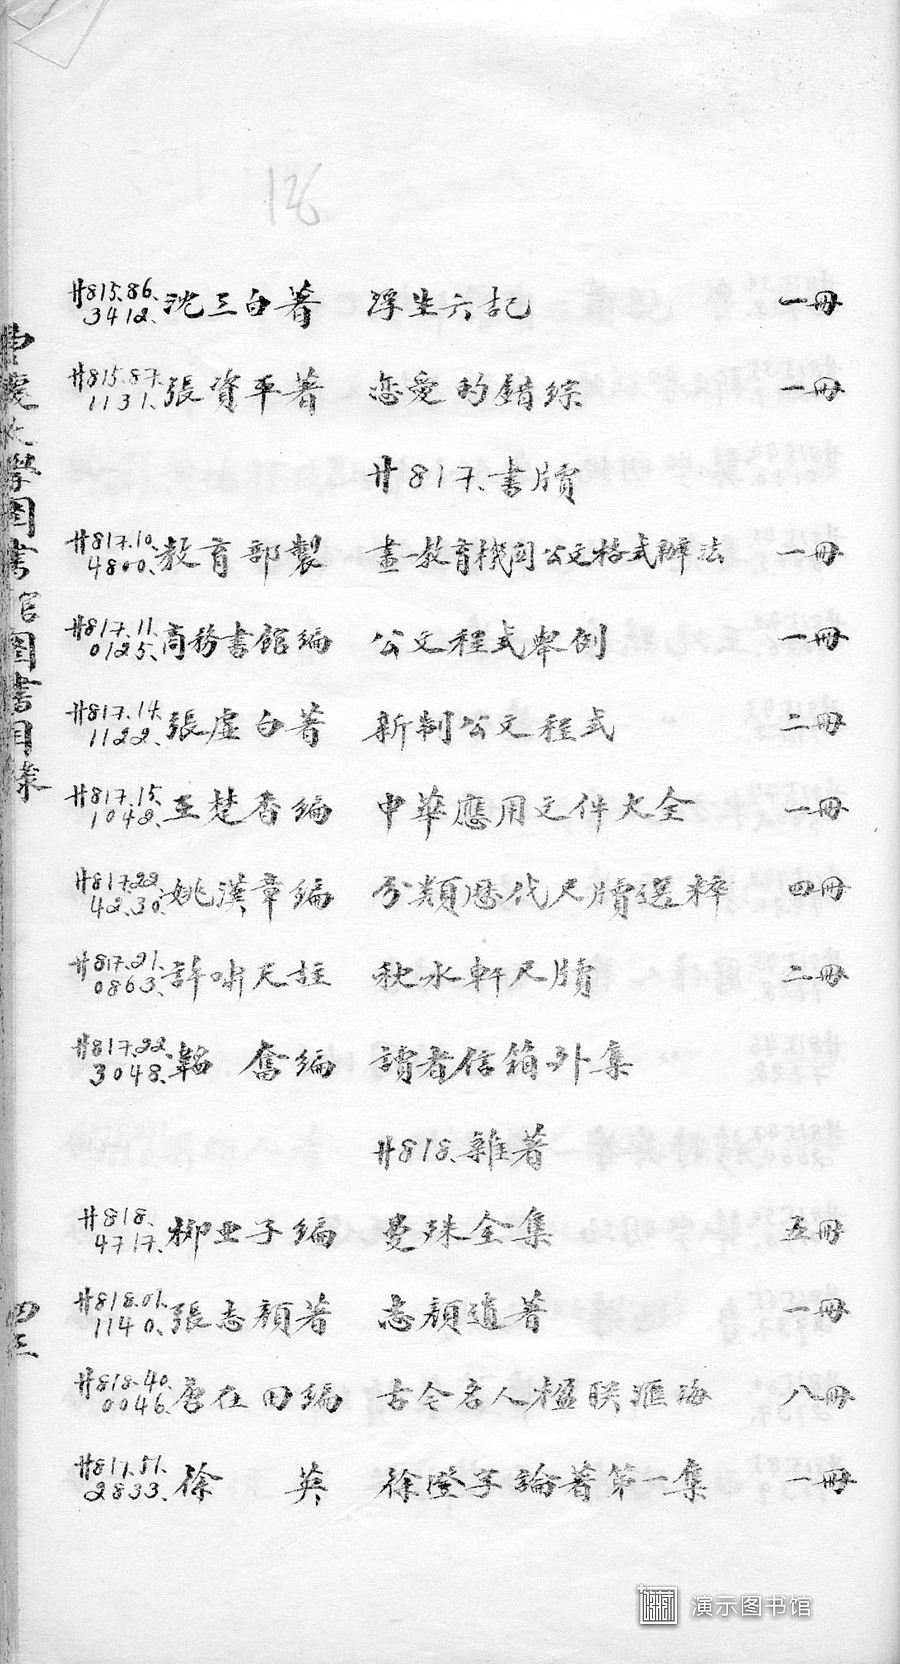 18
廿815.86. 3412. 沈三白著 浮生六記 一冊
廿815.87. 1131. 張資平著 恋爱的錯綜 一冊
廿817. 書牘
廿817.10. 4800. 教育部製 畫一教育機関公文格式辦法 一冊
廿817.11. 0125. 商務書館編 公文程式舉例 一冊
廿817.14. 1122. 張虛白著 新制公文程式 二冊
廿817.15. 1048. 王楚香編 中華應用文件大全 一冊
廿817.22. 4230. 姚漢章編 分類歷代尺牘選粹 四冊
廿817.21. 0863. 許嘯天註 秋水軒尺牘 二冊
廿817.22. 3048. 韜奮編 讀者信箱外集
廿818. 雜著
廿818. 4717. 柳亚子編 曼殊全集 五冊
廿818.01. 1140. 張志顏著 志顏遺著 一冊
廿818.40. 0046. 唐在田編 古今名人楹联滙海 八冊
廿817.51. 2833. 徐英 徐澄宇論著第一集 一冊
慶大學圖書館圖書目錄
四三
演示图书馆